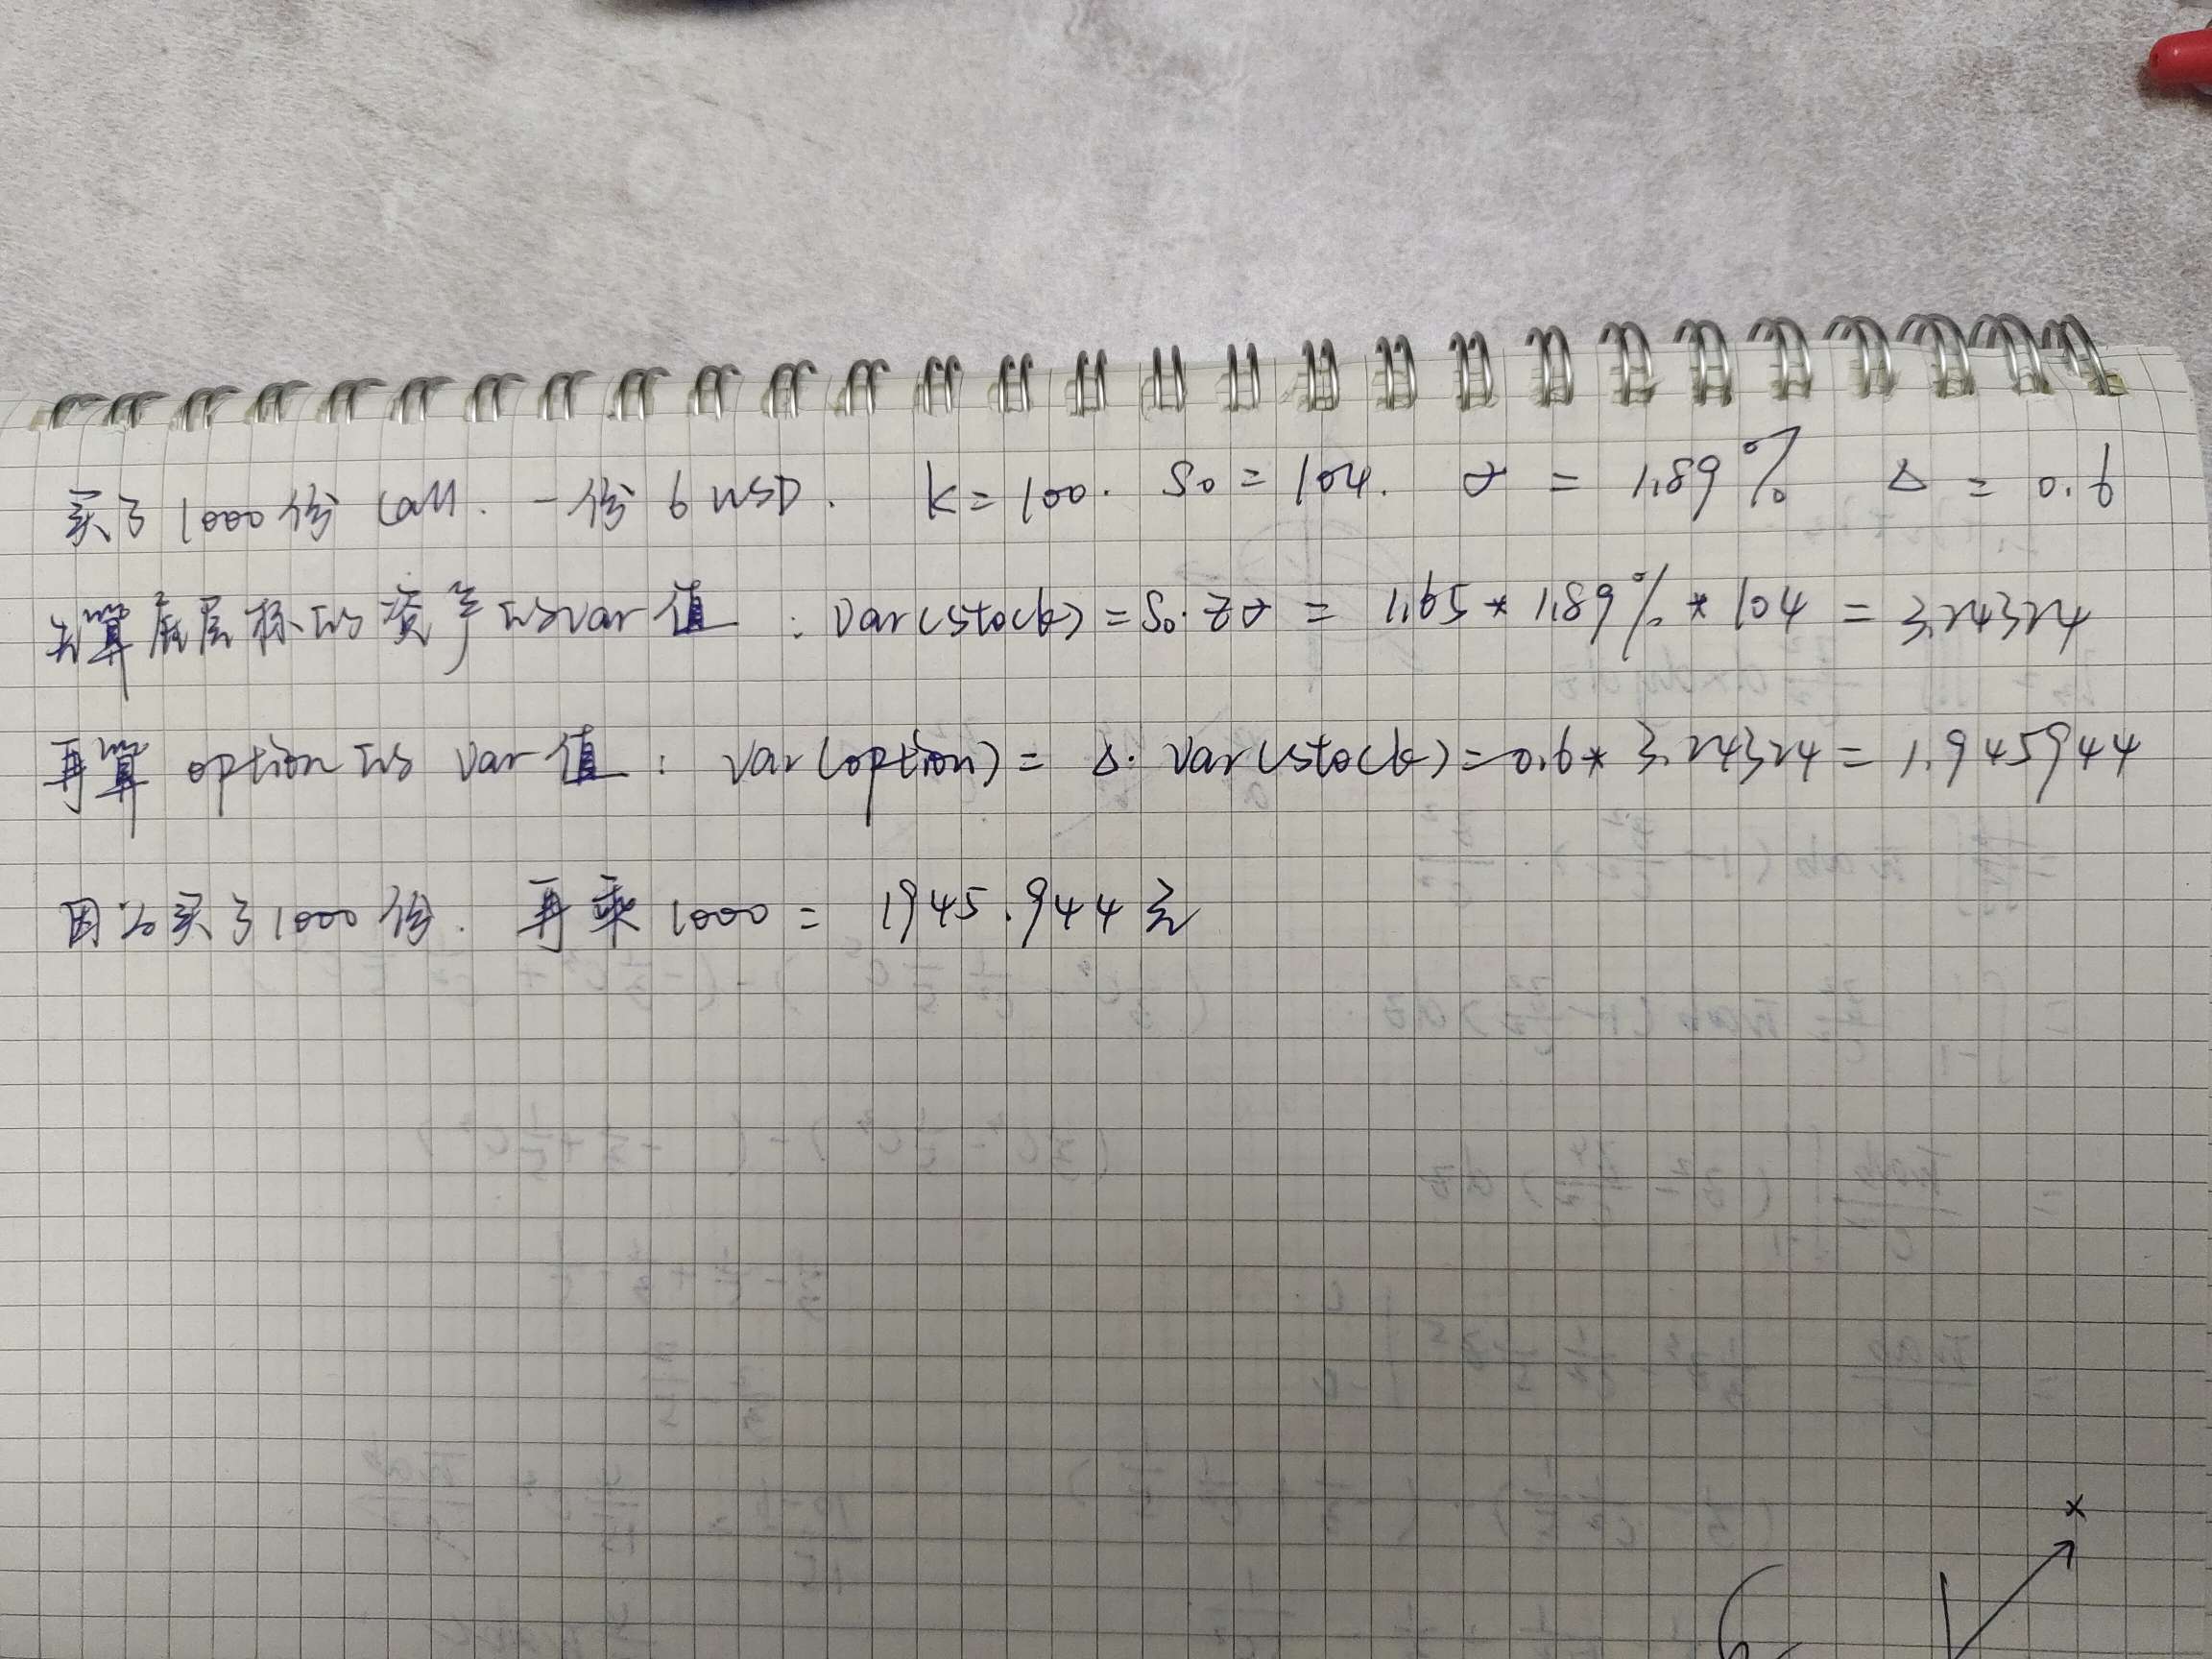 买了1000份call. 一份6USD. K=100. S0=104. σ=1.89% Δ=0.6
先算底层标的资产的var值：Var(stock)=S0·zσ=1.65*1.89%*104=3.24324
再算option的var值：Var(option)=Δ·Var(stock)=0.6*3.24324=1.945944
因为买了1000份. 再乘1000=1945.944元
x